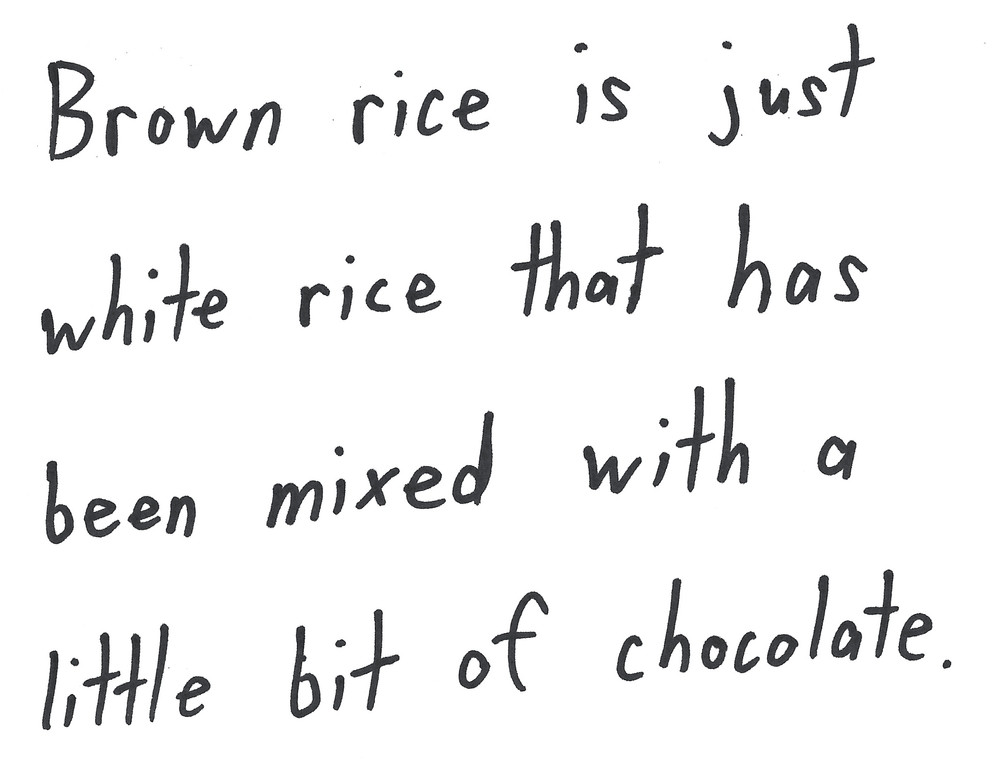 Brown rice is just
white rice that has
been mixed with a
little bit of chocolate.